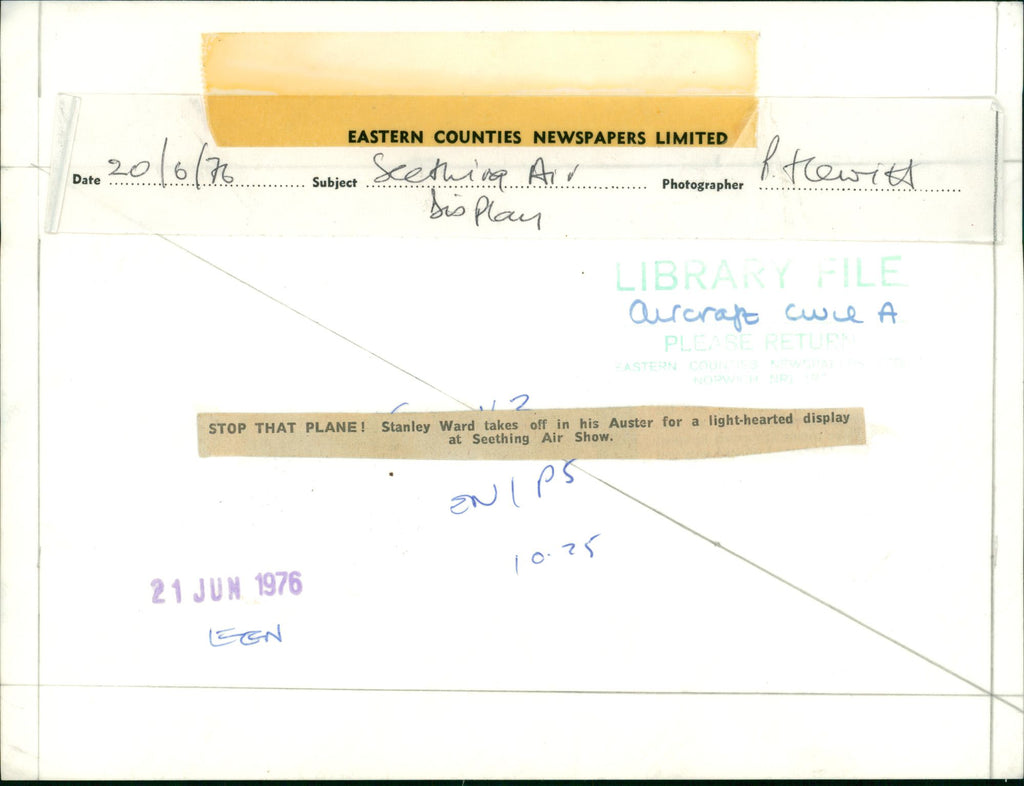 EASTERN COUNTIES NEWSPAPERS LIMITED
Date 20/6/76 Subject Seething Air Display Photographer P. Hewitt
LIBRARY FILE
Aircraft Civil A
PLEASE RETURN
EASTERN COUNTIES NEWSPAPERS
NORWICH NR1
STOP THAT PLANE! Stanley Ward takes off in his Auster for a light-hearted display
at Seething Air Show.
EN1 P5
10.25
21 JUN 1976
EEN